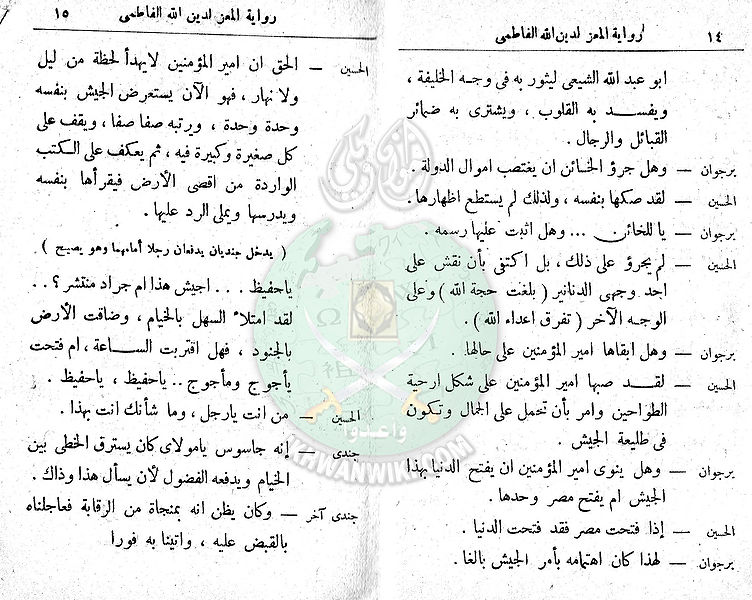 ١٤ رواية المعز لدين الله الفاطمى
ابو عبد الله الشيعى ليثور به فى وجه الخليفة ،
ويفسد به القلوب ، ويشترى به ضمائر
القبائل والرجال .
برجوان — وهل جرؤ الخائن ان يغتصب اموال الدولة .
الحسين — لقد صكها بنفسه ، ولذلك لم يستطع اظهارها .
برجوان — يا للخائن ... وهل اثبت عليها رسمه .
الحسين — لم يجرؤ على ذلك ، بل اكتفى بأن نقش على
احد وجهى الدنانير ( بلغت حجة الله ) وعلى
الوجه الآخر ( تفرق اعداء الله ) .
برجوان — وهل ابقاها امير المؤمنين على حالها .
الحسين — لقد صبها امير المؤمنين على شكل ارحية
الطواحين وامر بأن تحمل على الجمال وتكون
فى طليعة الجيش .
برجوان — وهل ينوى امير المؤمنين ان يفتح الدنيا بهذا
الجيش ام يفتح مصر وحدها .
الحسين — إذا فتحت مصر فقد فتحت الدنيا .
برجوان — لهذا كان اهتمامه بأمر الجيش بالغا .
رواية المعز لدين الله الفاطمى ١٥
الحسين — الحق ان امير المؤمنين لايهدأ لحظة من ليل
ولا نهار ، فهو الآن يستعرض الجيش بنفسه
وحدة وحدة ، ورتبه صفا صفا ، ويقف على
كل صغيرة وكبيرة فيه ، ثم يعكف على الكتب
الواردة من اقصى الأرض فيقرأها بنفسه
ويدرسها ويملى الرد عليها .
( يدخل جنديان يدفعان رجلا أمامهما وهو يصيح )
ياحفيظ ... اجيش هذا ام جراد منتشر ؟ ..
لقد امتلاء السهل بالخيام ، وضاقت الأرض
بالجنود ، فهل اقتربت الساعة ، ام فتحت
يأجوج ومأجوج .. ياحفيظ ، ياحفيظ .
الحسين — من انت يارجل ، وما شأنك انت بهذا .
جندى — إنه جاسوس يامولاى كان يسترق الخطى بين
الخيام ويدفعه الفضول لأن يسأل هذا وذاك .
جندى آخر — وكان يظن انه بمنجاة من الرقابة فعاجلناه
بالقبض عليه ، واتينا به فورا
الإخوان
وأعدوا
IKHWANWIKI.COM